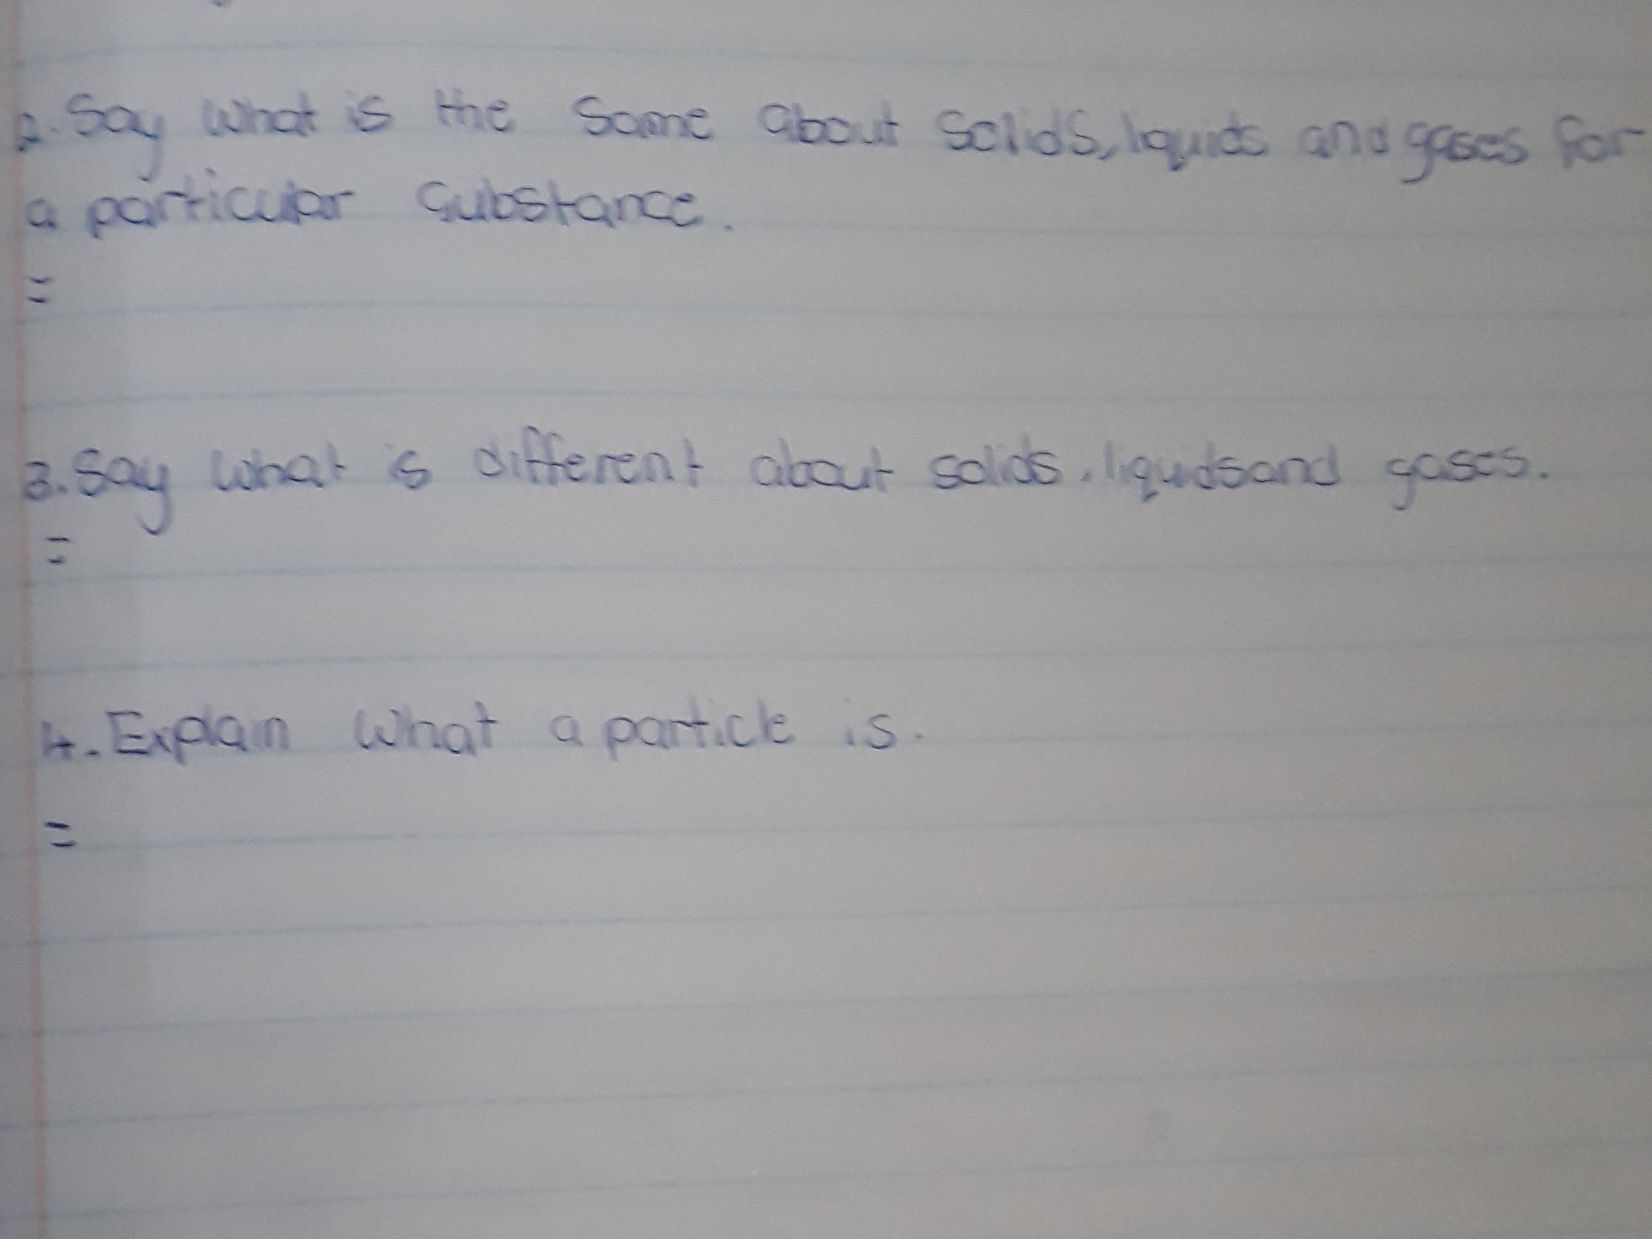 2. Say what is the same about solids, liquids and gases for
a particular substance.
=
3. Say what is different about solids, liquids and gases.
=
4. Explain what a particle is.
=